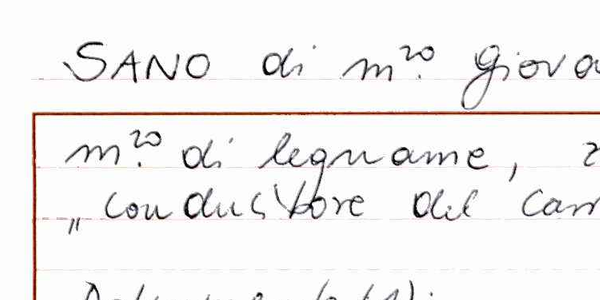 SANO di m.ro Giova
m.ro di legname,
„conduttore del cam